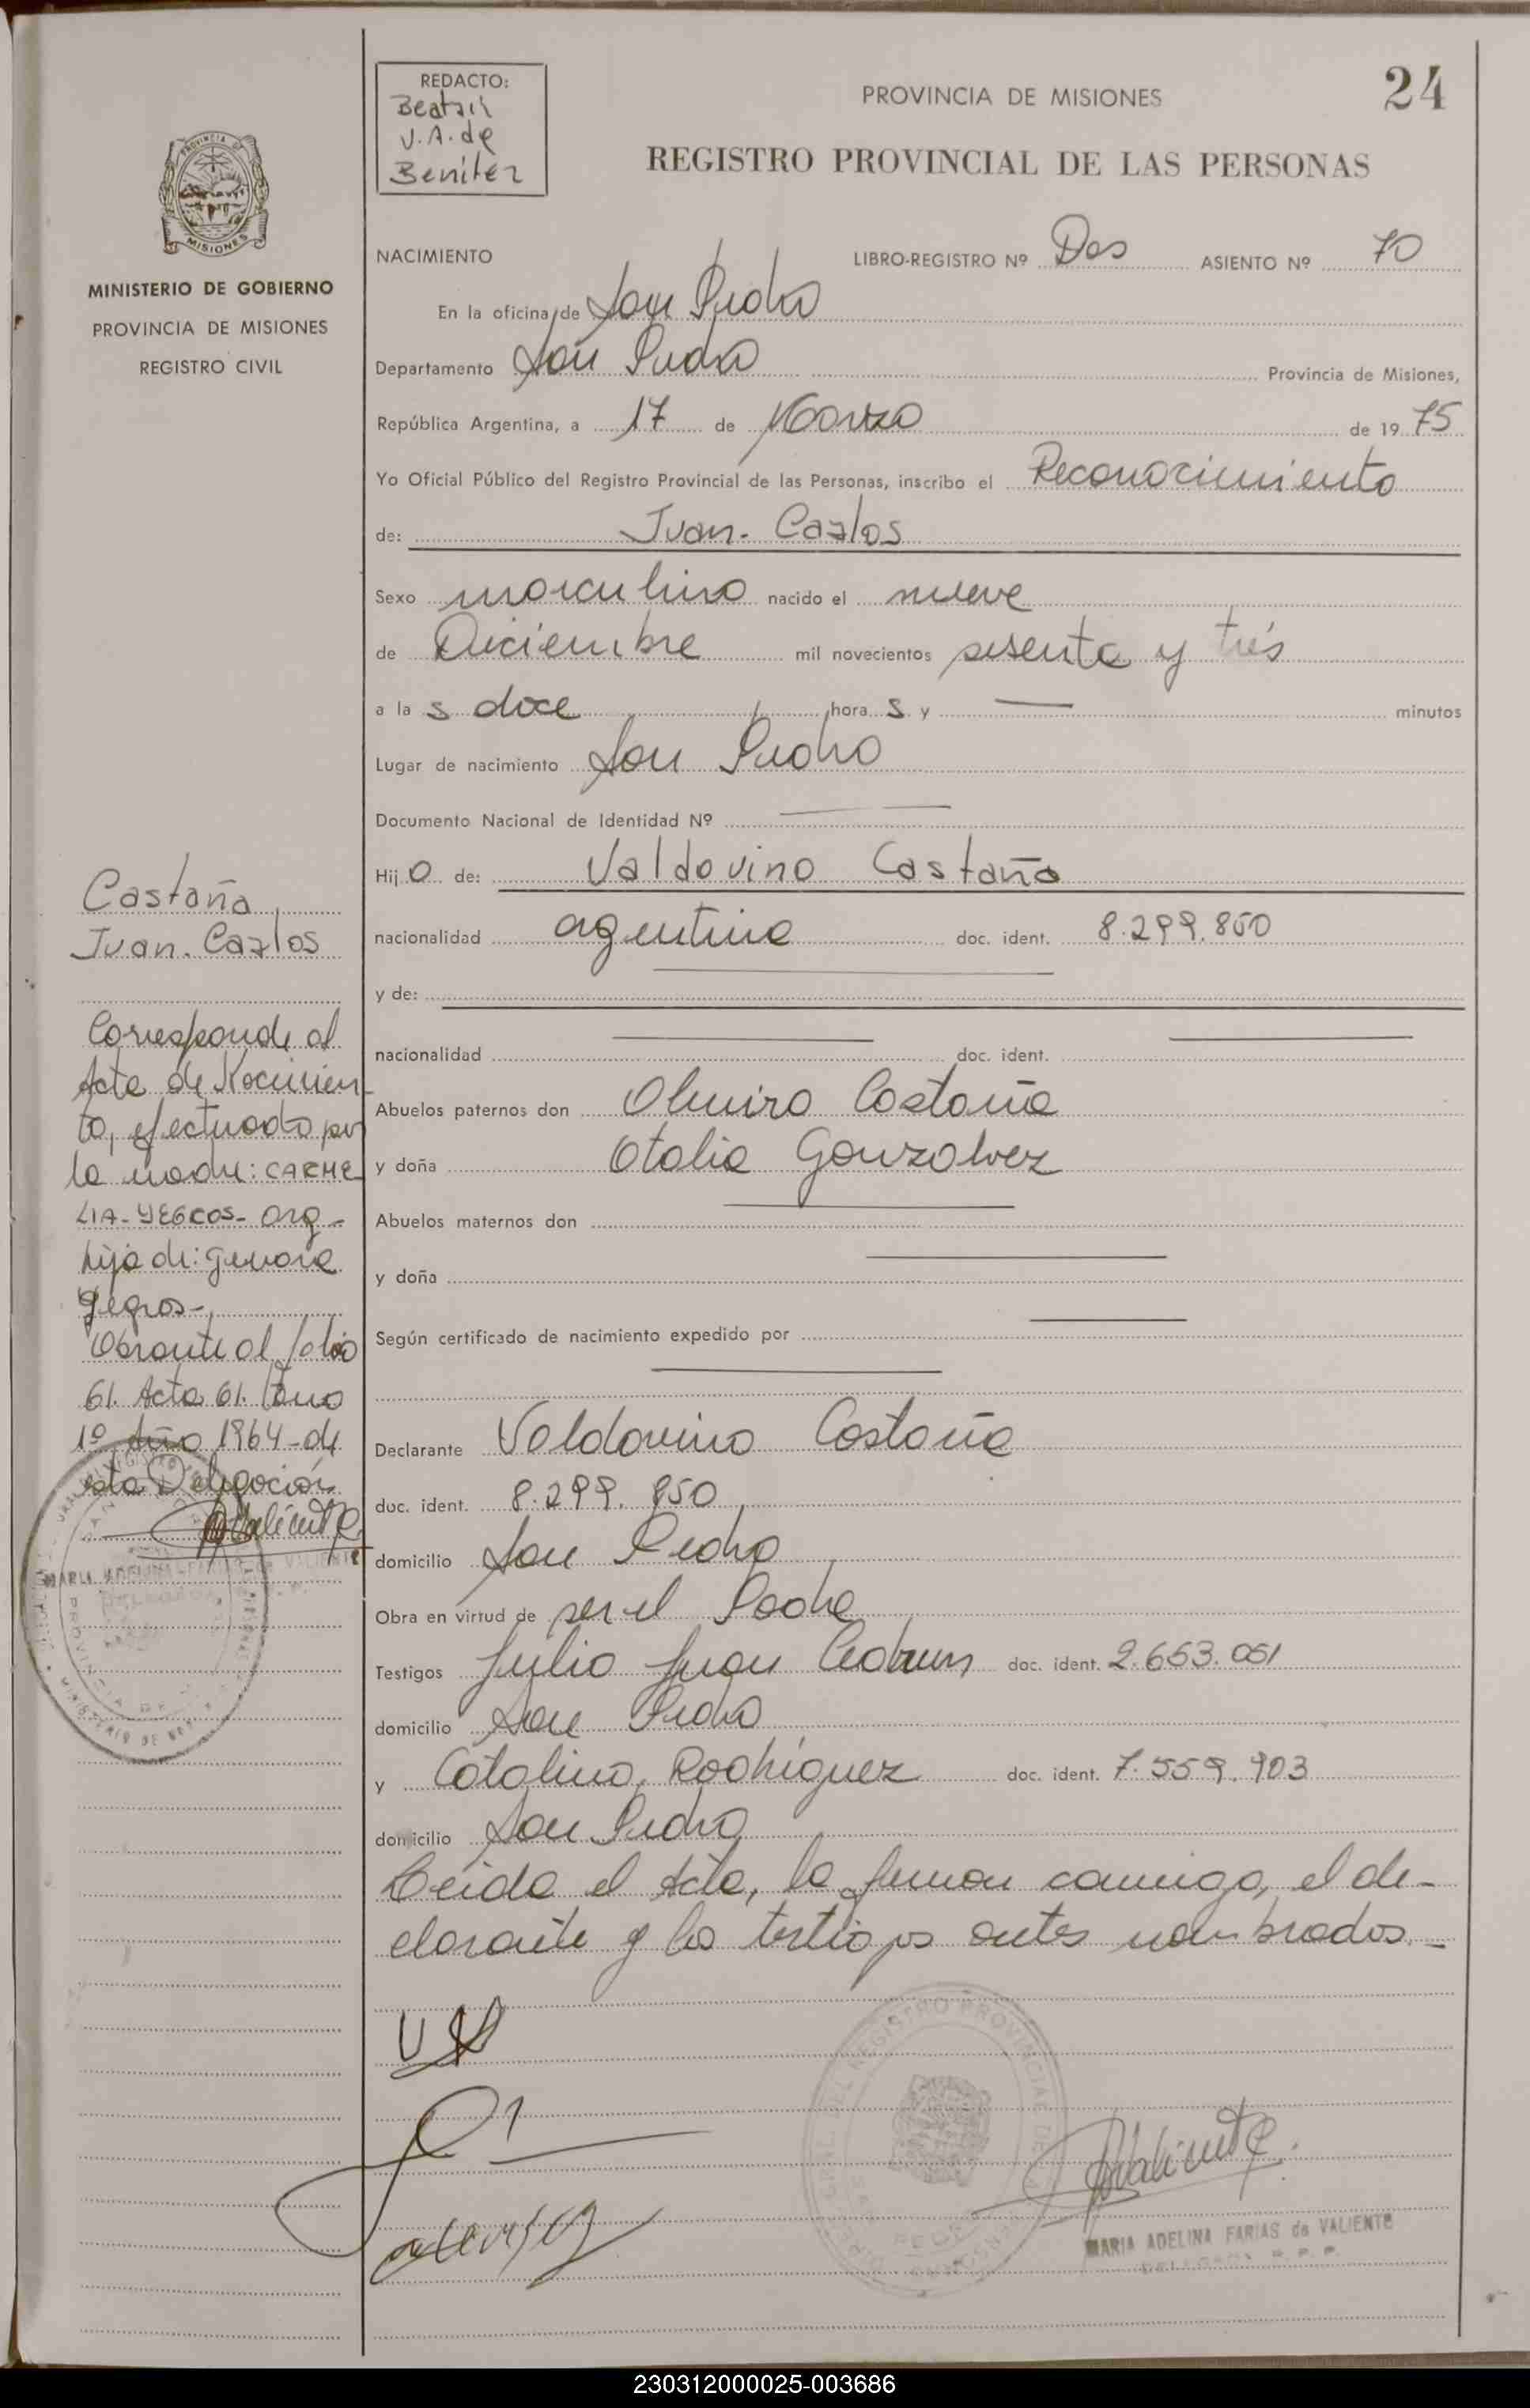 24
REDACTO:
Beatriz
V.A. de
Benitez
PROVINCIA DE MISIONES
REGISTRO PROVINCIAL DE LAS PERSONAS
PROVINCIA DE
MISIONES
MINISTERIO DE GOBIERNO
PROVINCIA DE MISIONES
REGISTRO CIVIL
NACIMIENTO LIBRO-REGISTRO Nº Dos ASIENTO Nº 70
En la oficina de San Pedro
Departamento San Pedro Provincia de Misiones,
República Argentina, a 17 de Marzo de 1975
Yo Oficial Público del Registro Provincial de las Personas, inscribo el Reconocimiento
de: Juan. Carlos
Sexo masculino nacido el nueve
de Diciembre mil novecientos sesenta y trés
a la s doce hora s y — minutos
Lugar de nacimiento San Pedro
Documento Nacional de Identidad Nº —
Hijo de: Valdovino Castaña
nacionalidad argentina doc. ident. 8.299.850
y de:
nacionalidad — doc. ident. —
Abuelos paternos don Olmiro Castaña
y doña Otalia Gonzalvez
Abuelos maternos don —
y doña —
Según certificado de nacimiento expedido por —
Declarante Valdovino Castaña
doc. ident. 8.299.850
domicilio San Pedro
Obra en virtud de ser el Padre
Testigos Julio Juan doc. ident. 2.653.051
domicilio San Pedro
y Catalino Rodriguez doc. ident. 7.559.903
domicilio San Pedro
Leida el Acta, la firman conmigo, el de-
clarante y los testigos antes nombrados.-
Castaña
Juan. Carlos
Corresponde al
Acta de Nacimien
to, efectuado por
la madre: CARME
LIA-YEGROS- arg-
hija de: Genara
Yegros-
Obrante al folio
61. Acta 61. Tomo
1º Año 1964-de
esta Delegación
MARIA ADELINA FARIAS de VALIENTE
MARIA ADELINA FARIAS de VALIENTE
DELEGADA R. P. P.
230312000025-003686